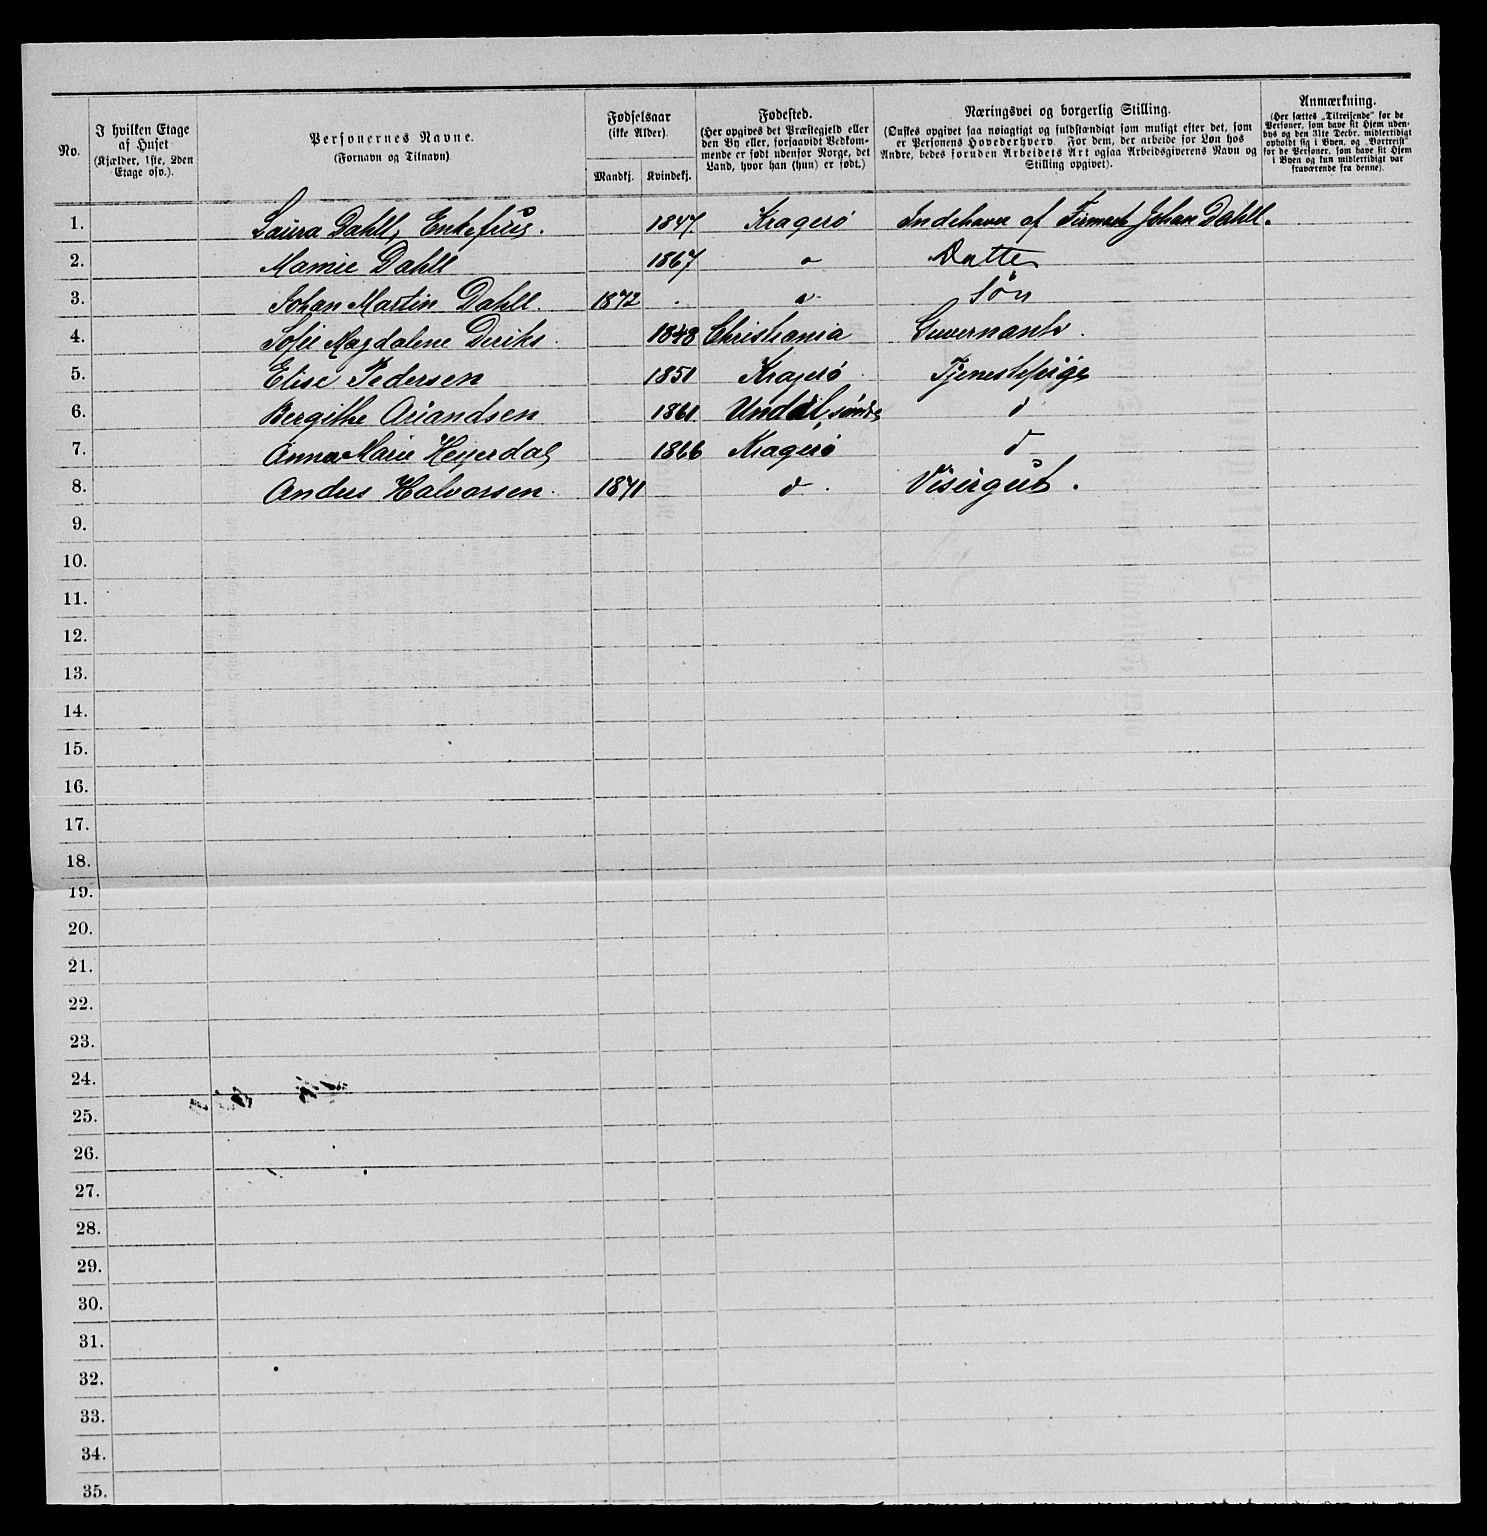 No. | I hvilken Etage af Huset (Kjælder, 1ste, 2den Etage osv.). | Personernes Navne. (Fornavn og Tilnavn) | Fødselsaar (ikke Alder). Mandkj. | Kvindekj. | Fødested. (Her opgives det Præstegjeld eller den By eller, forsaavidt Vedkommende er født udenfor Norge, det Land, hvor han (hun) er født.) | Næringsvei og borgerlig Stilling. (Ønskes opgivet saa nøiagtigt og fuldstændigt som muligt efter det, som er Personens Hovederhverv. For dem, der arbeide for Løn hos Andre, bedes foruden Arbeidets Art ogsaa Arbeidsgiverens Navn og Stilling opgivet). | Anmærkning. (Her sættes „Tilreisende" for de Personer, som have sit Hjem udenbys og den 31te Decbr. midlertidigt opholdt sig i Byen, og „Bortreist" for de Personer, som have sit Hjem i Byen og kun midlertidigt var fraværende fra denne).
1. Laura Dahll, Enkefrue. 1847 Kragerö Indehaver af Firmaet Johan Dahll.
2. Mamie Dahll 1867 " Datter
3. Johan Martin Dahll. 1872 " Søn
4. Sofie Magdalene Deriks. 1848 Christiania Guvernante.
5. Elise Pedersen 1851 Kragerö Tjenestepige
6. Bergithe Ariandsen 1861. Undal, søndre d
7. Anna Marie Heyerdal 1866 Kragerö d
8. Andres Halvorsen. 1871 d. Visergut.
9.
10.
11.
12.
13.
14.
15.
16.
17.
18.
19.
20.
21.
22.
23.
24.
25.
26.
27.
28.
29.
30.
31.
32.
33.
34.
35.